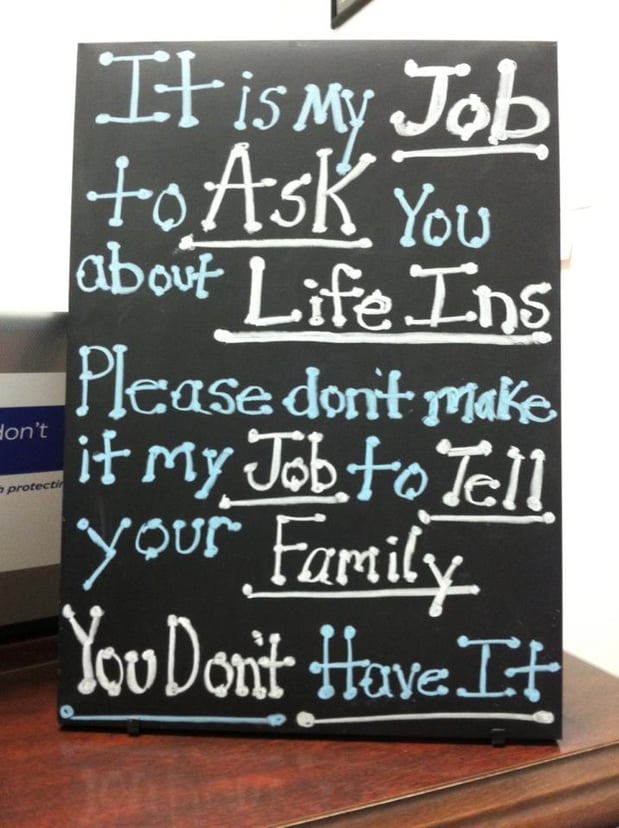 It is my Job
to Ask You
about Life Ins
Please don't make
it my Job to Tell
your Family
You Don't Have It
don't
protectin